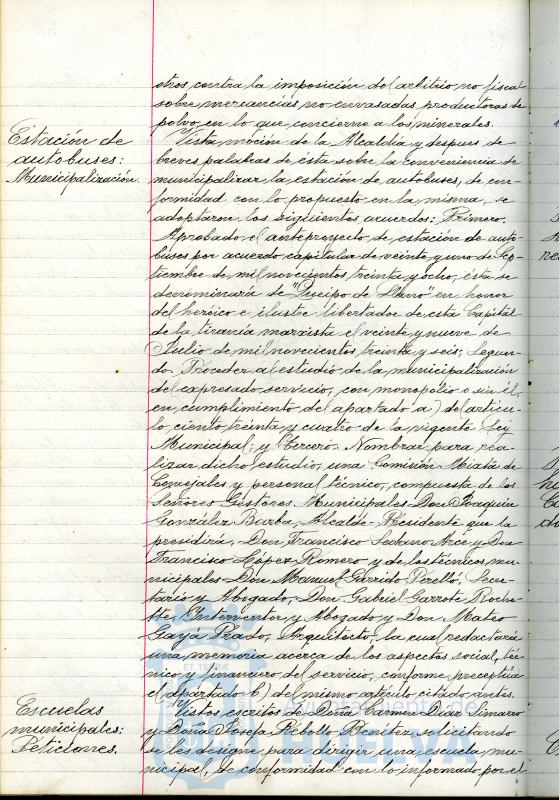 otros, contra la imposición del arbitrio no fiscal
sobre mercancías no envasadas productoras de
polvo, en lo que concierne a los minerales.
Estación de
autobuses:
Municipalización.
Vista moción de la Alcaldía y despues de
breves palabras de esta sobre la conveniencia de
municipalizar la estación de autobuses, de con-
formidad con lo propuesto en la misma, se
adoptaron los siguientes acuerdos: Primero.
Aprobado el anteproyecto de estación de auto-
buses por acuerdo capitular de veinte y uno de Sep-
tiembre de mil novecientos treinta y ocho, ésta se
denominará de "Queipo de Llano" en honor
del heróico e ilustre libertador de esta Capital
de la tiranía marxista el veinte y nueve de
Julio de mil novecientos treinta y seis; Segun-
do. Proceder al estudio de la municipalización
del expresado servicio, con monopolio o sin él,
en cumplimiento del apartado a) del artícu-
lo ciento treinta y cuatro de la vigente Ley
Municipal, y Tercero. Nombrar para rea-
lizar dicho estudio, una Comisión Mixta de
Concejales y personal técnico, compuesta de los
Señores Gestores Municipales Don Joaquín
González Barba, Alcalde-Presidente que la
presidirá, Don Francisco Arce y Don
Francisco López Romero y de los técnicos mu-
nicipales Don Manuel Garrido Perelló, Secre-
tario y Abogado, Don Gabriel Garrote Roche-
tte, Interventor y Abogado y Don Mateo
Gayá Prado, Arquitecto, la cual redactará
una memoria acerca de los aspectos social, téc-
nico y financiero del servicio, conforme preceptúa
el apartado b) del mismo artículo citado antes.
Escuelas
municipales:
Peticiones.
Vistos escritos de Doña Carmen Díaz Limarro
y Doña Josefa Rebollo Benitez solicitando
se les designe para dirigir una escuela mu-
nicipal, de conformidad con lo informado por el
ET TERRÆ
Ayuntamiento de
HUELVA